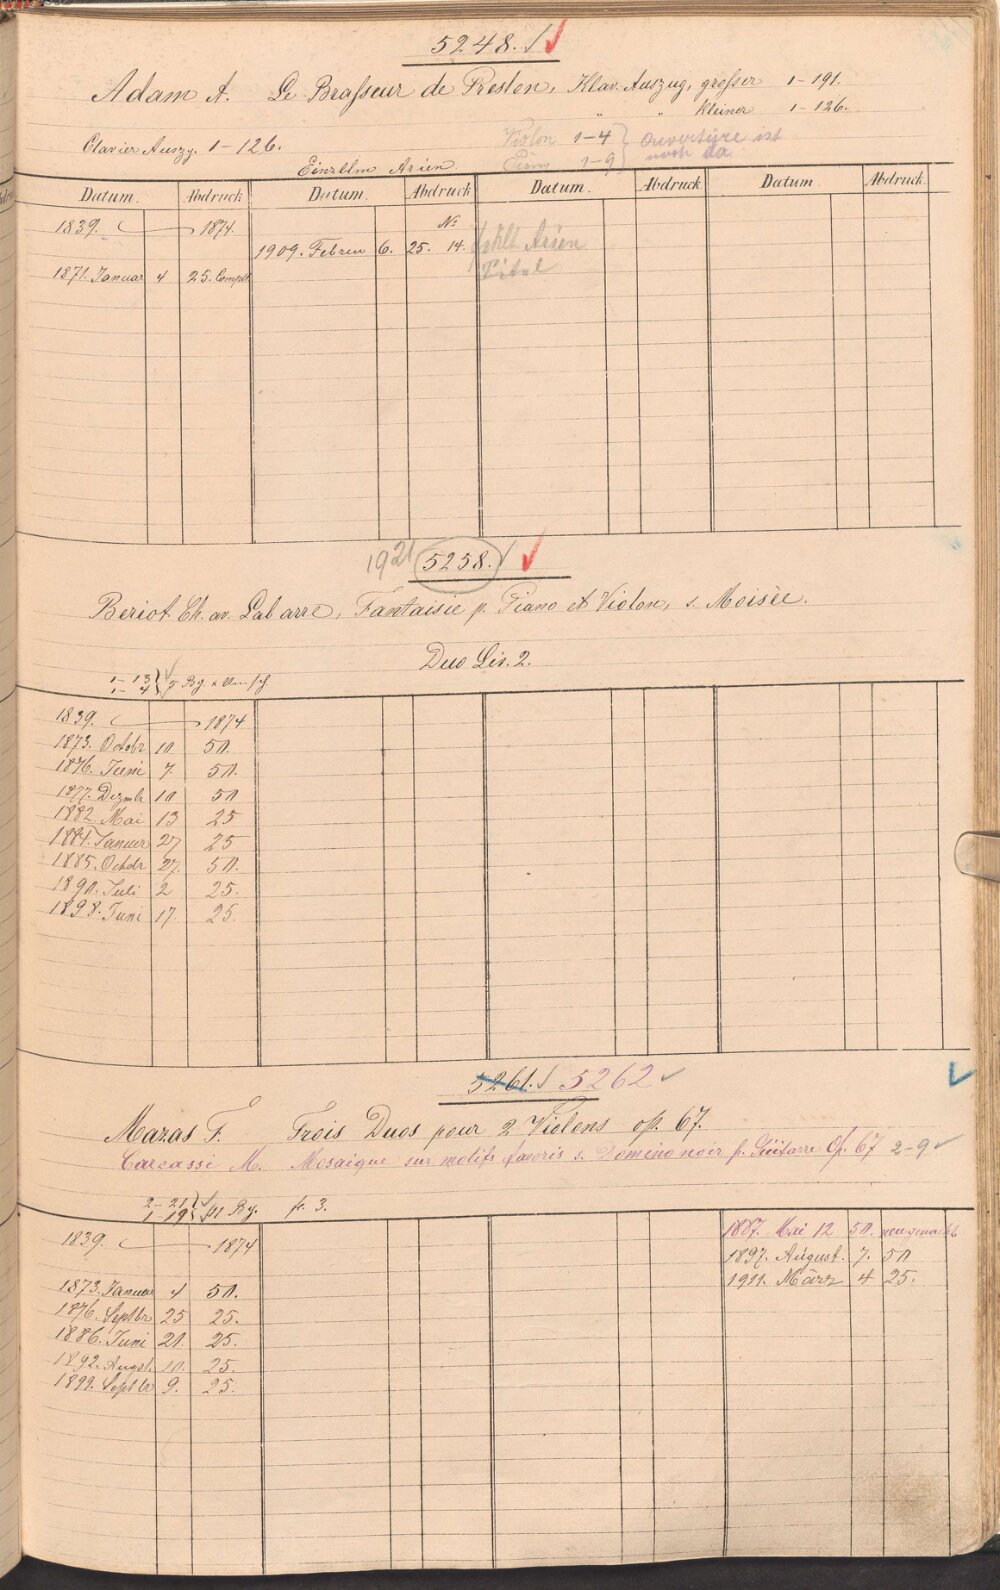 5248.
Adam A. Le Brasseur de Preston, Klav. Auszug, grosser 1-191.
" " kleiner 1-126.
Clavier Auszg. 1-126.
Violon 1-4 } Ouvertüre ist
Piano 1-9 } noch da
Einzelne Arien
Datum. Abdruck Datum. Abdruck Datum. Abdruck Datum. Abdruck.
1839. 1874. No
1909. Februr 6. 25. 14. fehlt Arien
1871. Januar 4 25. Complt. Titel
1921 5258.
Beriot Ch. av. Labarre, Fantaisie p. Piano et Violon, s. Moisée.
Duo Liv. 2.
1-13 } 5 Bg.
1-4 }
1839. 1874
1873. Octobr 10 50.
1876. Juni 7. 50.
1877. Dezmbr 10 50
1882. Mai 13 25
1884. Januar 27 25
1885. Octobr 27. 50.
1890. Juli 2 25.
1898. Juni 17. 25.
5261. 5262
Mazas F. Trois Duos pour 2 Violons op. 67.
Carcassi M. Mosaique sur motifs favoris s. Domino noir p. Guitarre Op. 67 2-9
2-21 } 11 Bg. fr. 3.
1-19 }
1839. 1874 1887. Mai 12 50. neu gemacht
1897. August. 7. 50
1873. Januar 4 50. 1911. März 4 25.
1876. Septbr 25 25.
1886. Juni 21. 25.
1892. Augst. 10. 25.
1899. Septbr 9. 25.